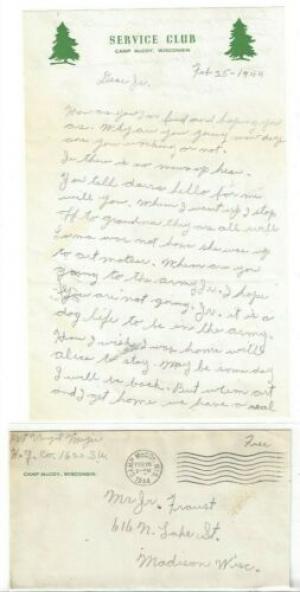 SERVICE CLUB
CAMP McCOY, WISCONSIN
Feb 25-1944
Dear Jr.
How are you I'm fine and hoping you
are. Why are you now day
are you working or not.
Jr there is no news up hear.
You tell hello for me
will you. When I went up I stop
to grandma they are all well
was not home she was up
to art mother. When are you
going to the army Jr. I hope
you are not going. Jr. it is a
dog life to be in the army.
How I wish I was home with
alice to stay. May be some day
I will be back. But when art
and I get home we have a real
H.Q. Co.
CAMP McCOY, WISCONSIN
CAMP McCOY WIS.
FEB
1944
Free
Mr Jr. Fraust
616 N. Lake St.
Madison Wisc.